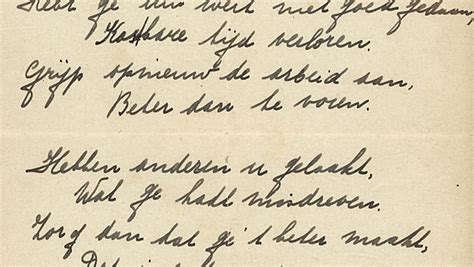 Hebt ge uw werk niet goed gedaan,
Kostbare tijd verloren.
Grijp opnieuw de arbeid aan,
Beter dan te voren.
Hebben anderen u gelaakt,
Wat ge hadt misdreven.
Zorg dan dat ge 't beter maakt,